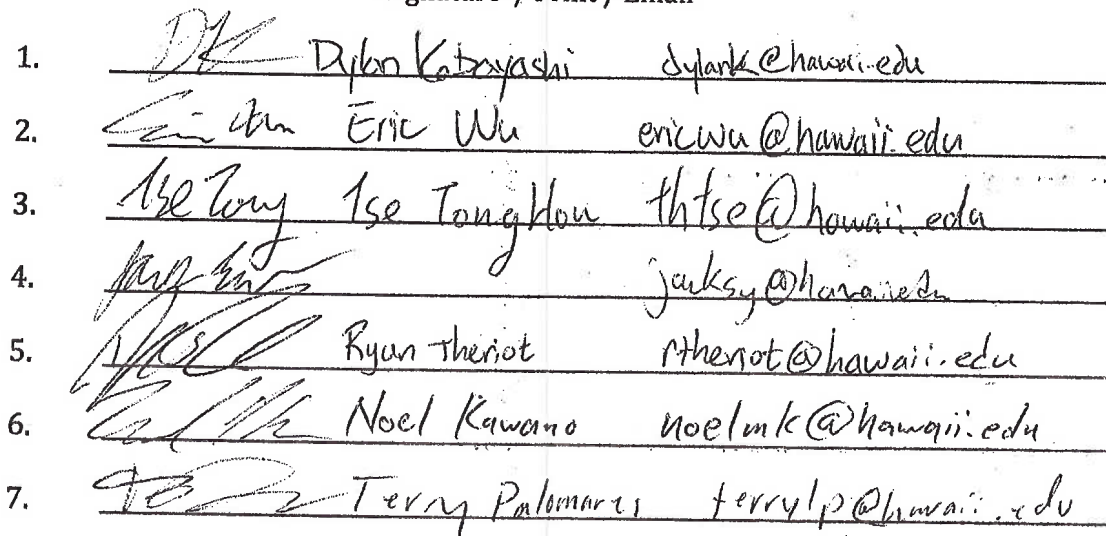 Print / Email
1. Dylan Kobayashi dylank@hawaii.edu
2. Eric Wu ericwu@hawaii.edu
3. Tse Tong Tse Tong Hou thtse@hawaii.edu
4. @hawaii.edu
5. Ryan Theriot rtheriot@hawaii.edu
6. Noel Kawano noelmk@hawaii.edu
7. Terry Palomares terrylp@hawaii.edu